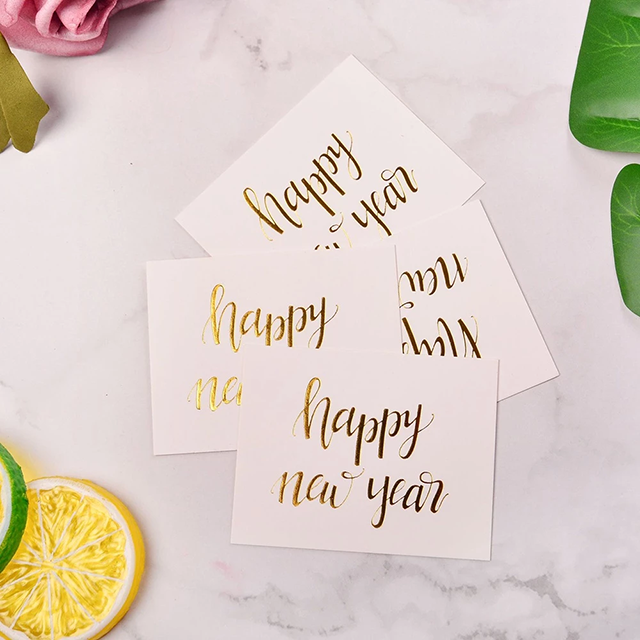 happy
new year
happy
ne
happy
new year